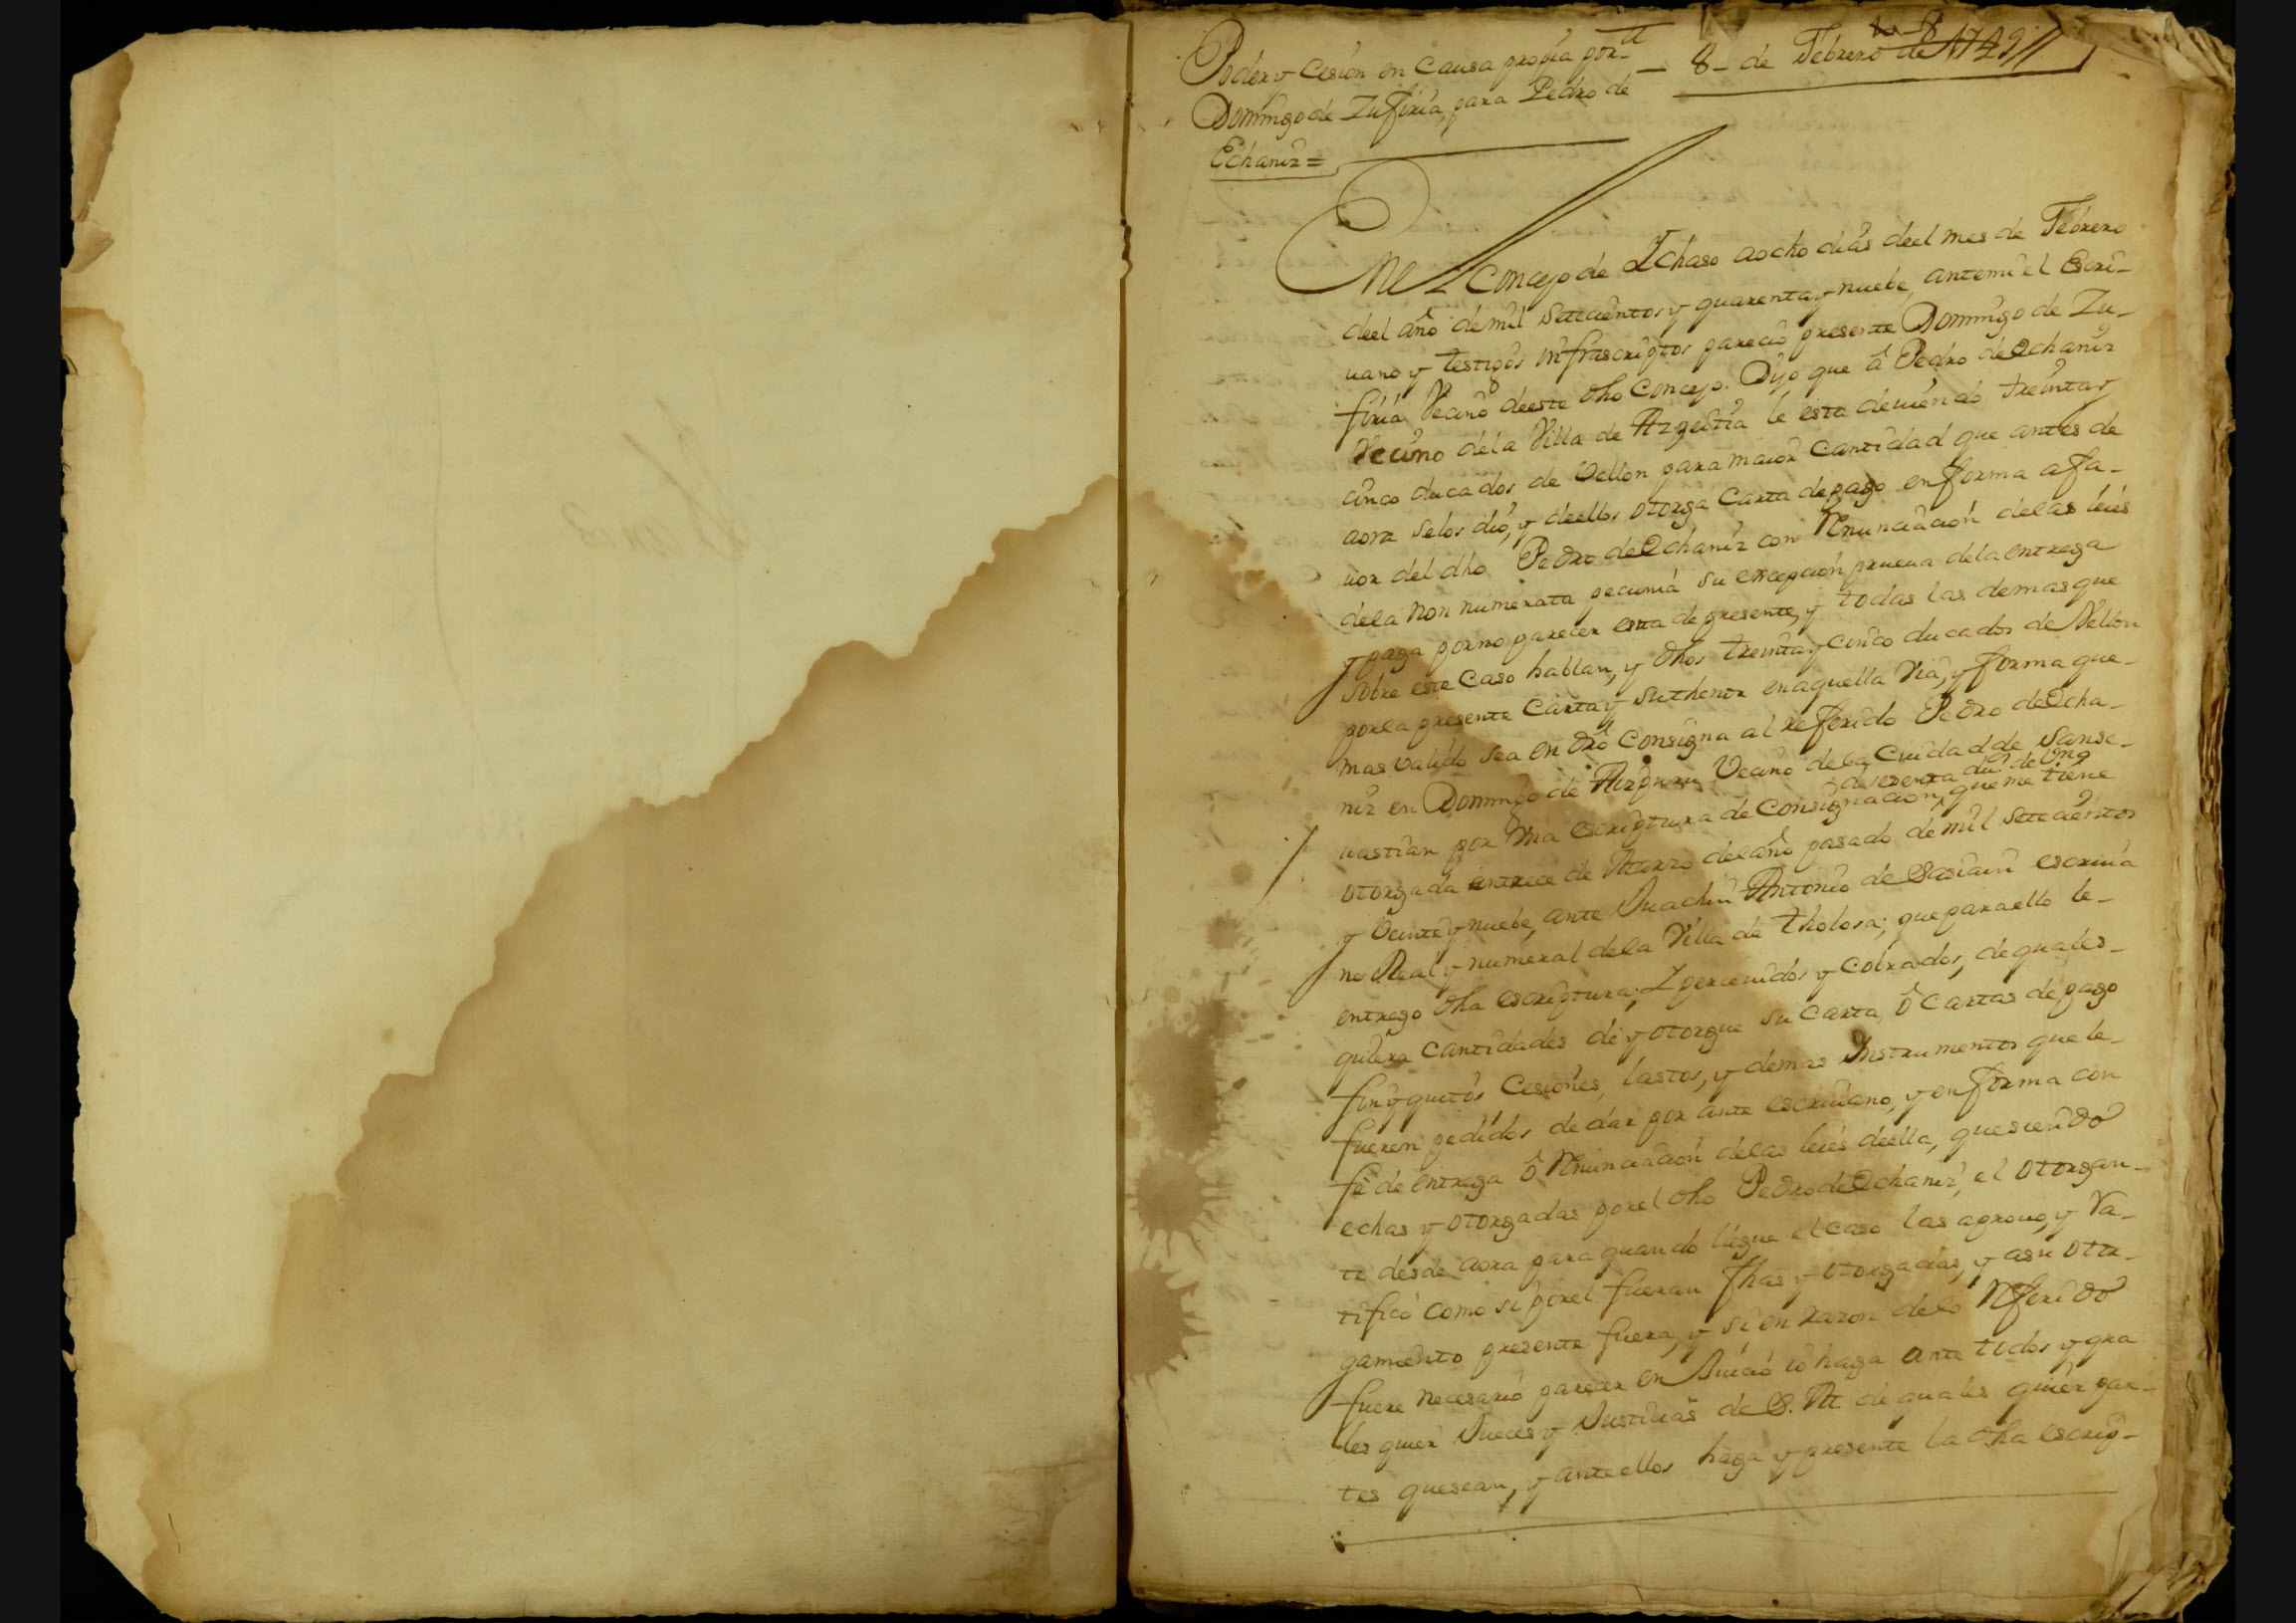 Poder y Cesion en Causa propia por
Domingo de Zufiria, para Pedro de
Echaniz =
8 - de Febrero de 1749
En el Concejo de Ychaso a ocho dias deel mes de Febrero
deel año de mil setecientos y quarenta y nuebe, ante mi el Escri-
uano y testigos infrascriptos parecio presente Domingo de Zu-
firia Vecino deeste dho Concejo. Dijo que â Pedro de Echaniz
Vecino dela Villa de Azpeitia le esta deuiendo treinta y
cinco ducados de Vellon para maior Cantidad que antes de
aora selos dió, y deellos otorga Carta de pago en forma a fa-
uor del dho Pedro de Echaniz con Renunciacion delas leies
dela non numerata pecunia su excepcion prueua dela entrega
y paga por no parecer esta de presente, y todas las demas que
sobre este Caso hablan, y dhos treinta y cinco ducados de Vellon
por la presente Carta y su thenor en aquella Via, y forma que
mas valido sea en dro Consigna al referido Pedro de Echa-
niz en Domingo de Vecino dela Ciudad de Sanse-
de sesenta du.s de
uastian por Vna escriptura de Consignacion, que me tiene
otorgada en trece de Marzo del año pasado de mil setecientos
y Veinte y nuebe, ante Juachin Antonio de Sasiain escriua
no Real y numeral dela Villa de tholosa; que para ello le
entrego dha escriptura; Y perceuidos y Cobrados, de quales-
quiera Cantidades dé y otorgue su Carta, ô Cartas de pago
finyquitos Cesiones, lastos, y demas Instrumentos que le
fueren pedidos de dar por ante escriuano, y en forma con
fè de entrega ô Renunciacion delas leies deella, que siendo
echas y otorgadas por el dho Pedro de Echaniz, el otorgan-
te desde aora para quando llegue el caso las aprouo, y Ra-
tificó como si por el fueran fhas y otorgadas, y a su otor-
gamiento presente fuera, y si en razon delo Referido
fuere necesario parecer en Juicio lo haga ante todos y qua
les quier Jueces y Justicias de S. M. de quales quier par-
tes que sean, y ante ellos haga y presente la dha escrip-